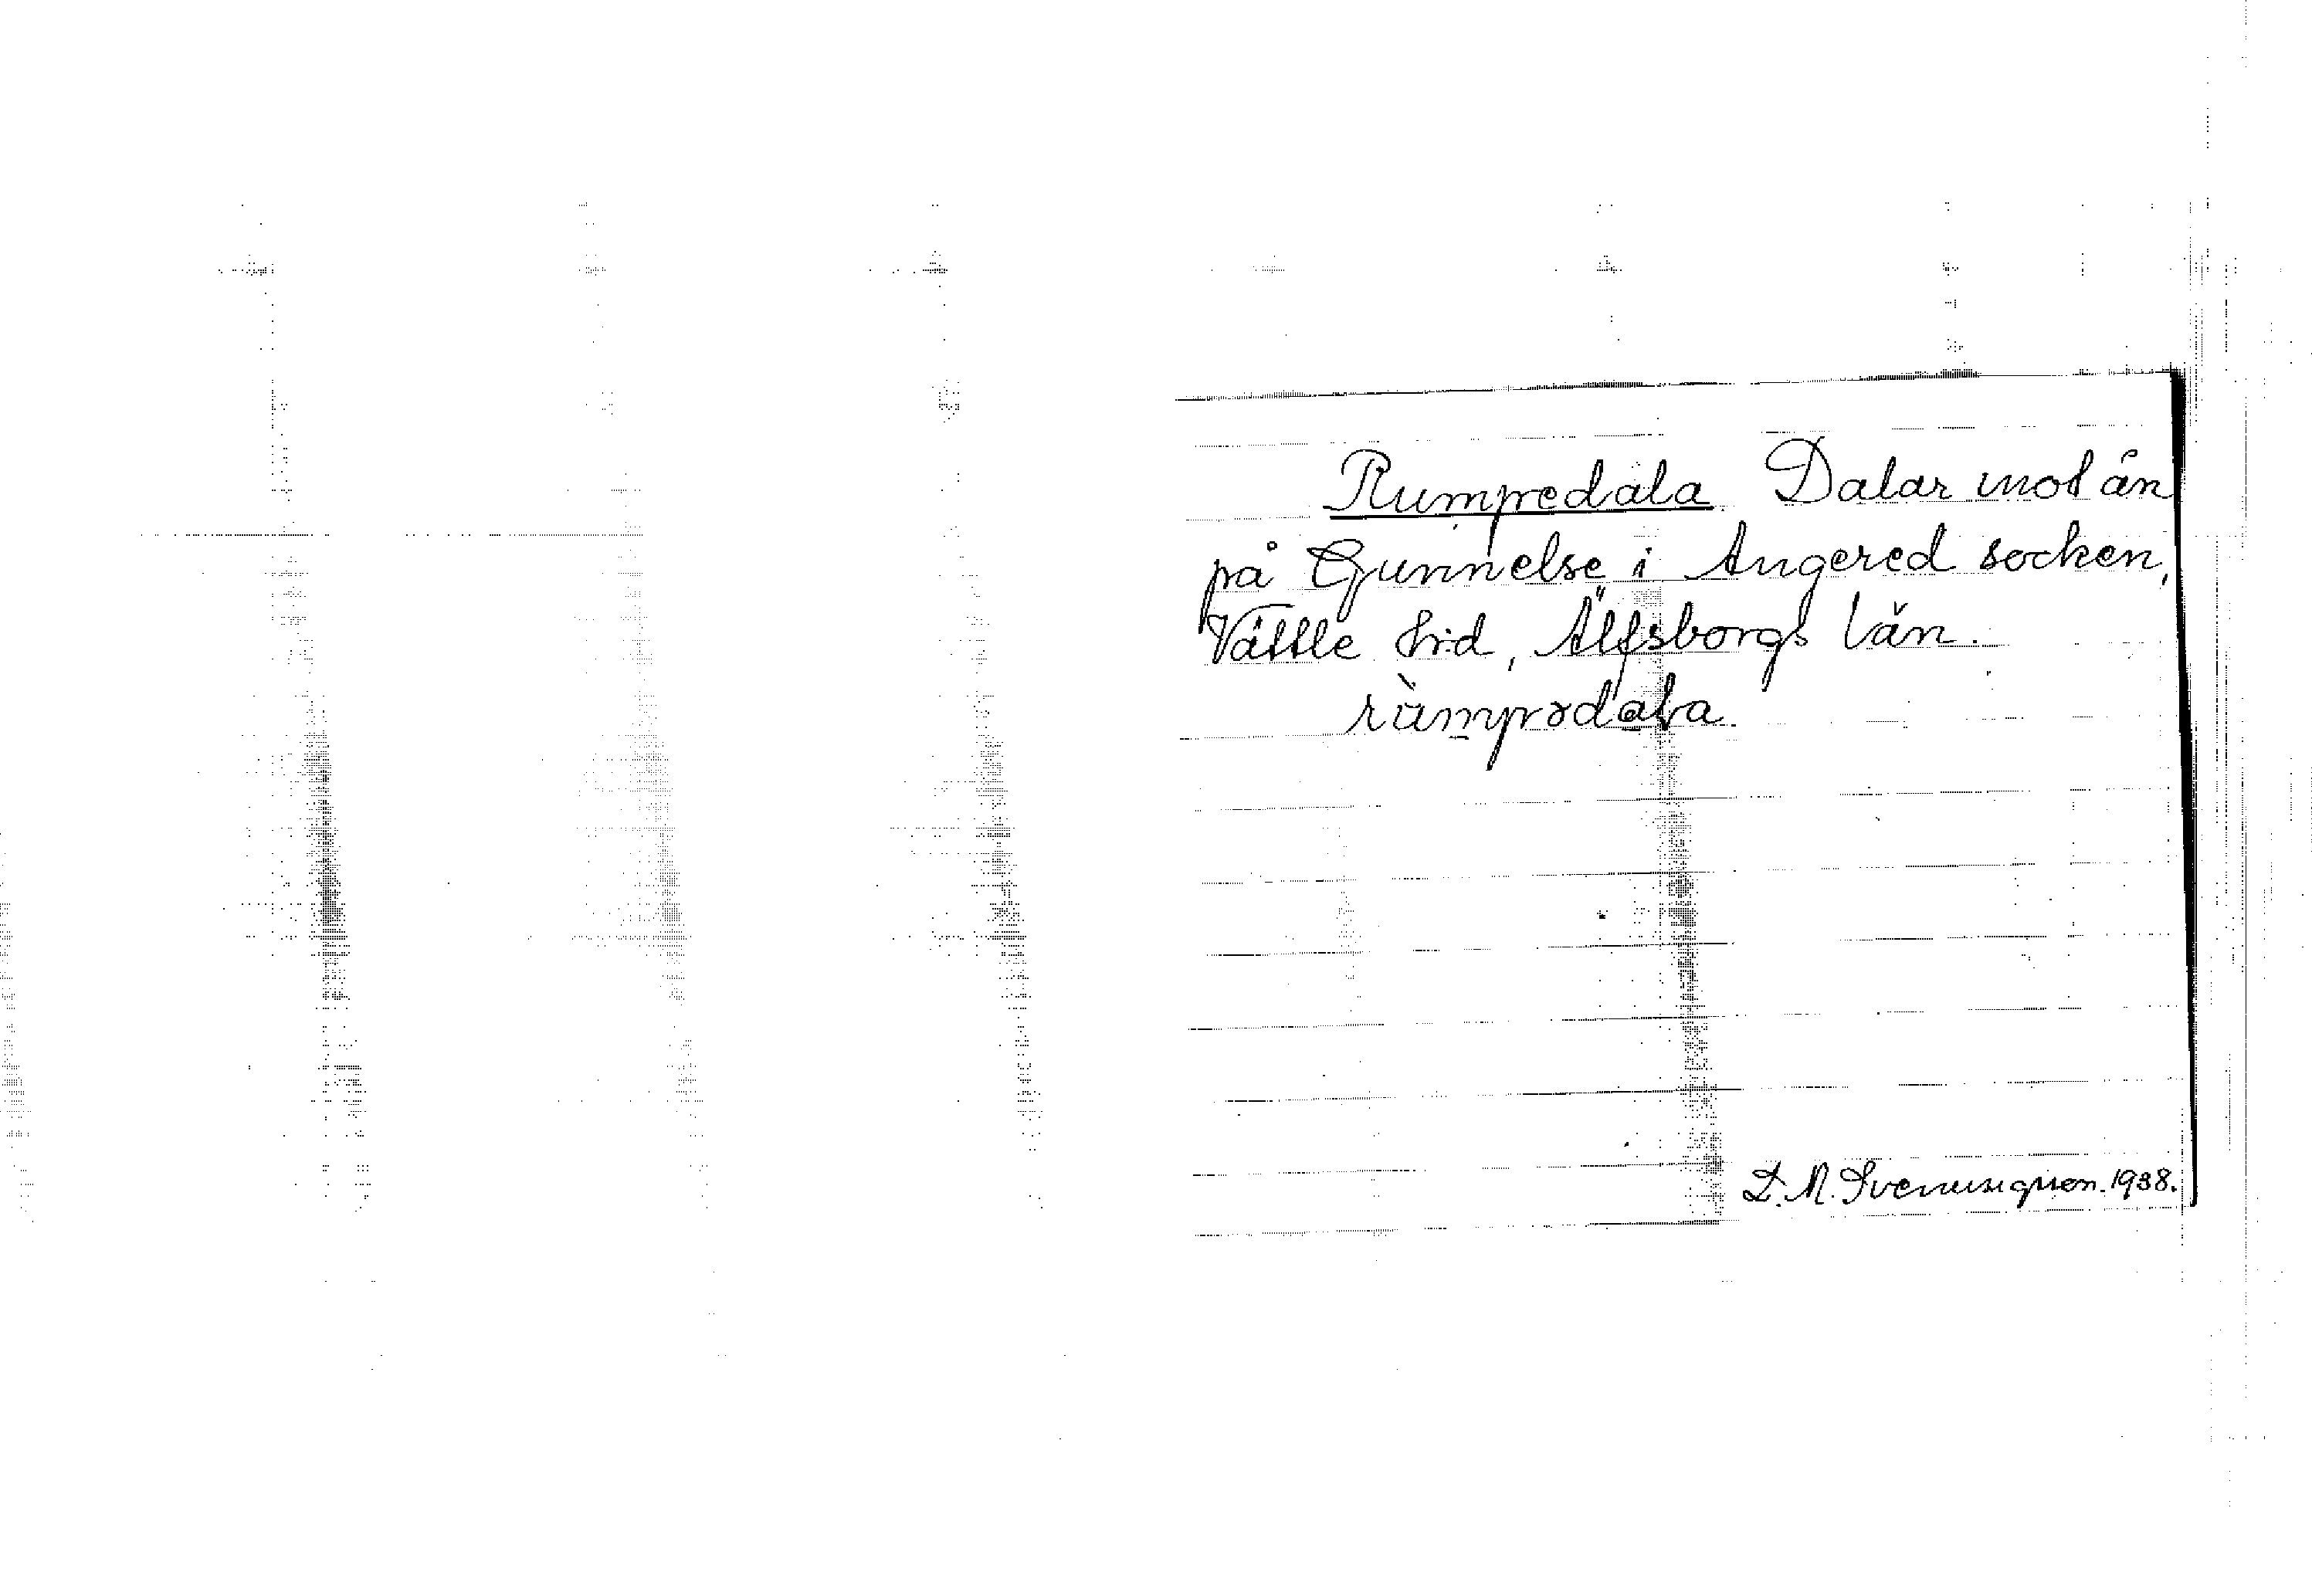 Rumpedala Dalar mot ån
på Gunnelse i Angered socken,
Vättle hd, Älfsborgs län.
rùmpədaɫa.
1938.